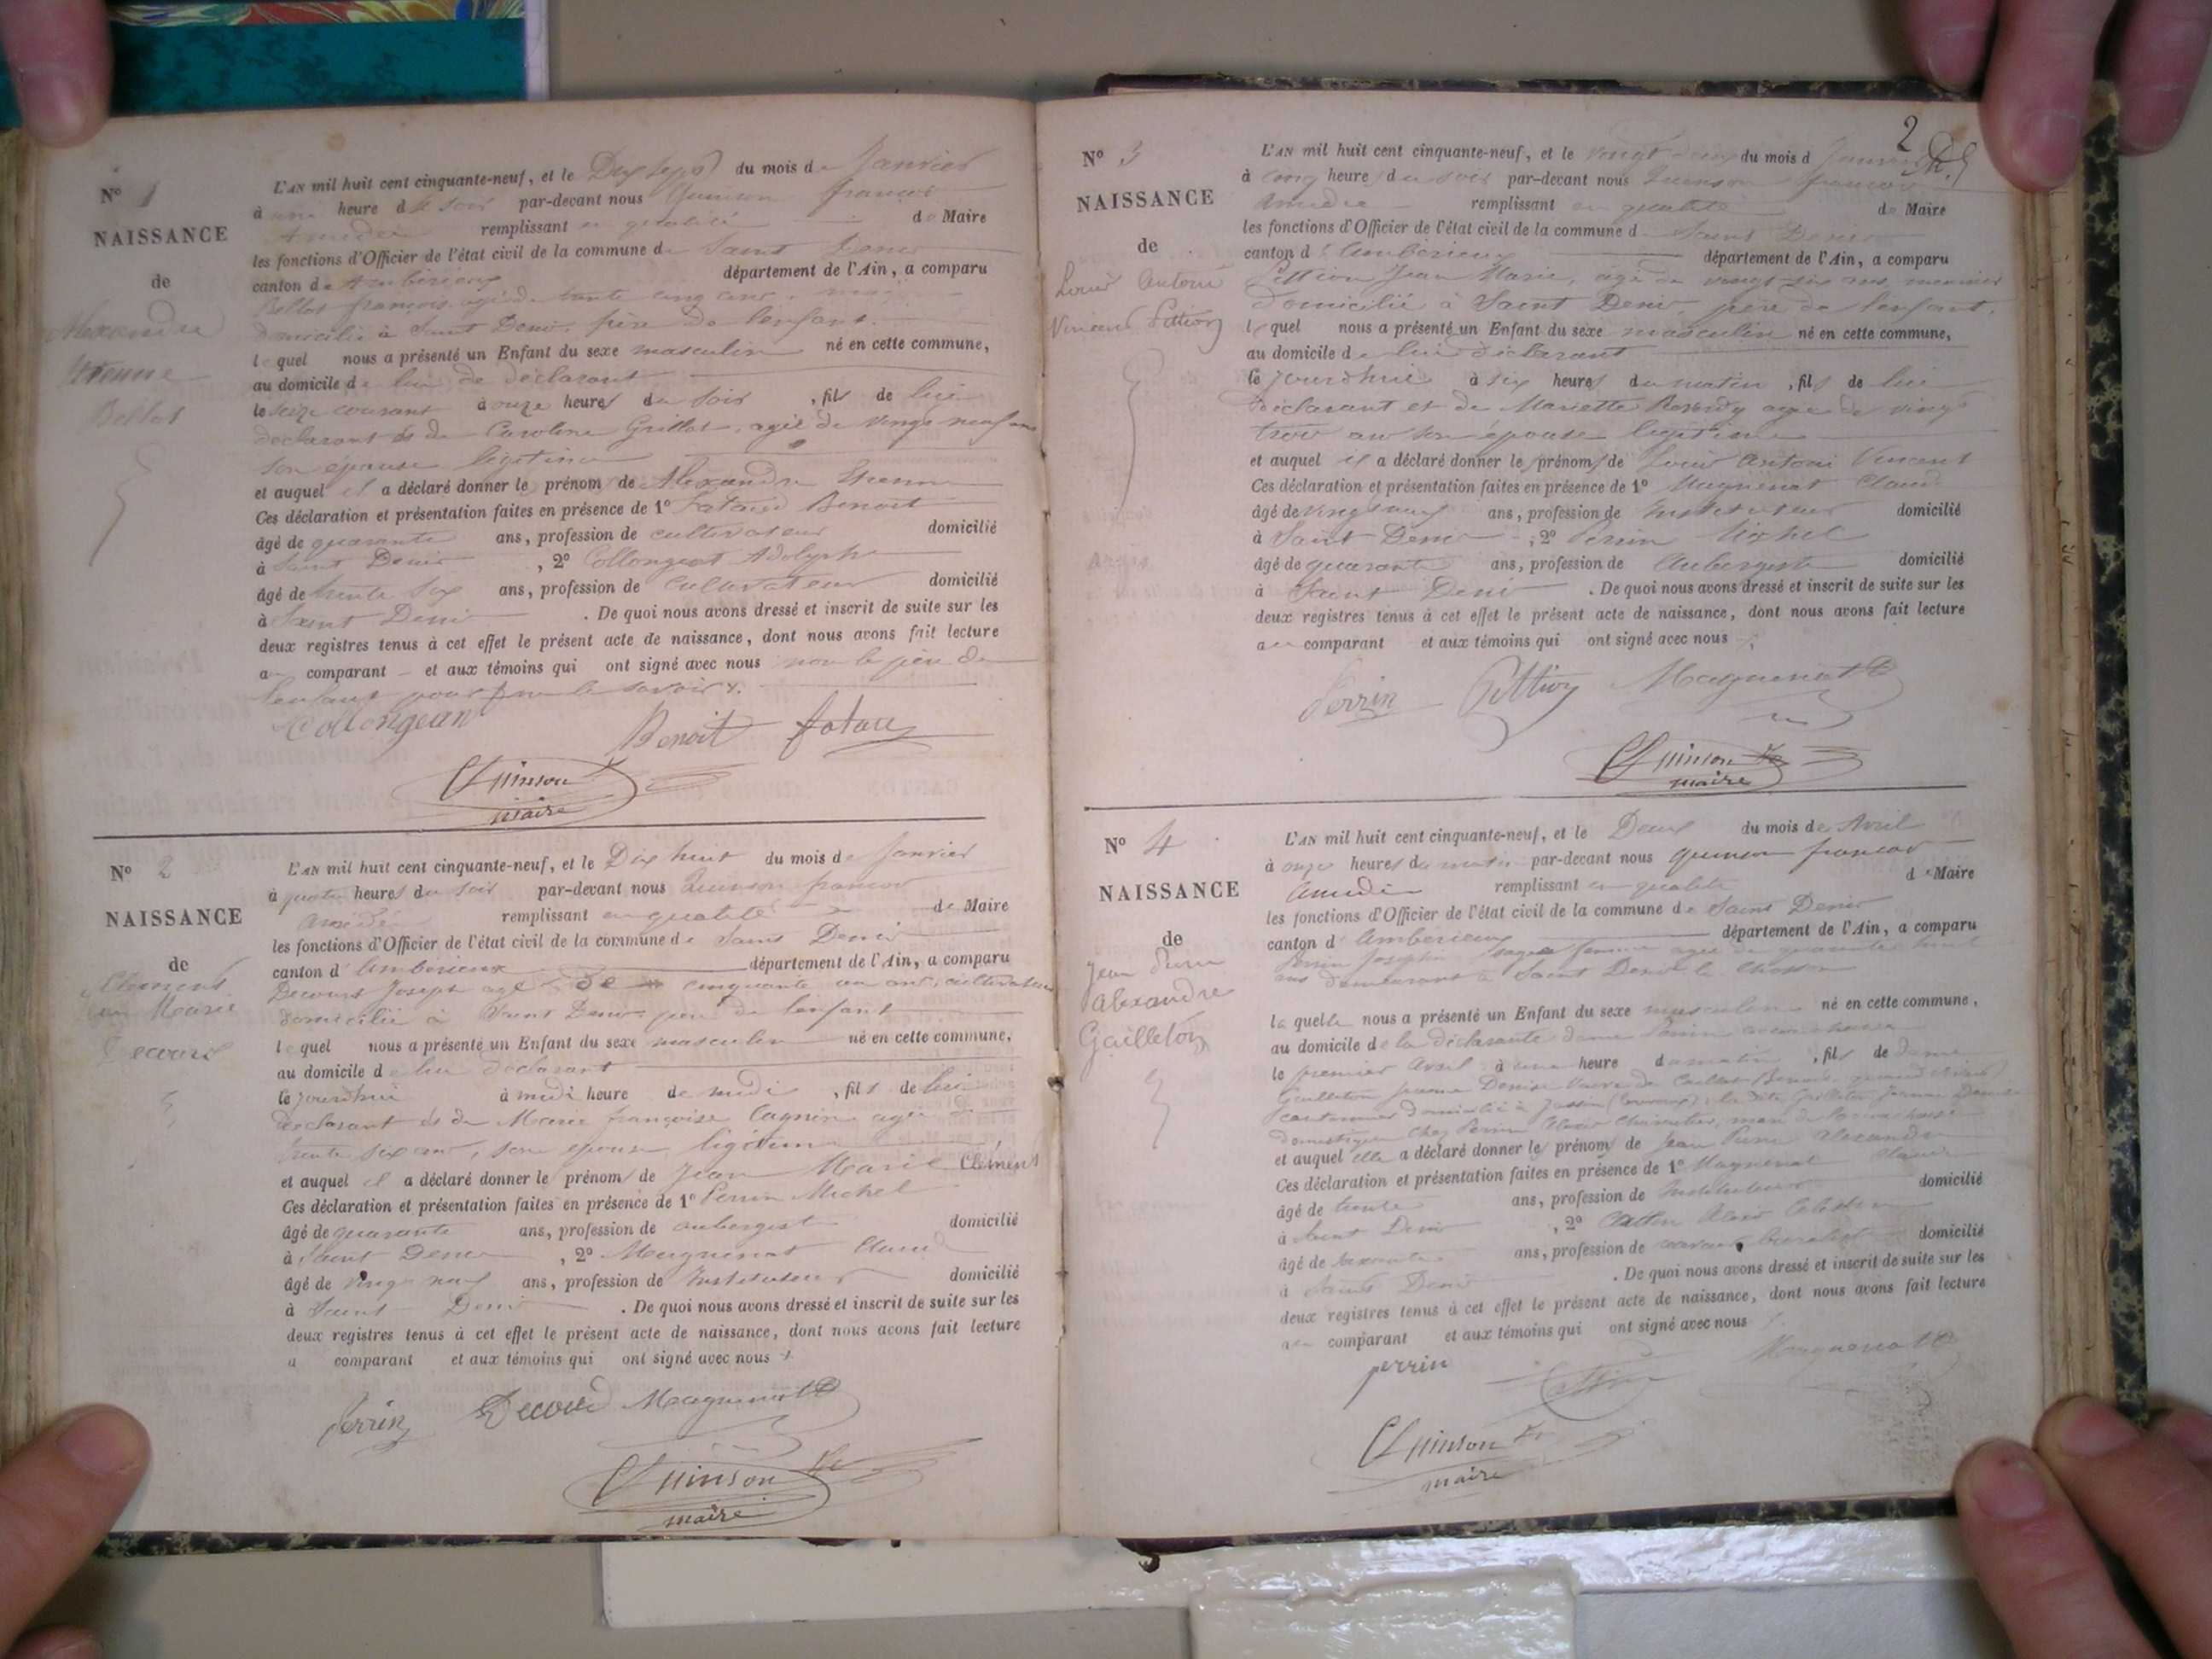 N° 1
NAISSANCE
de
Alexandre
Etienne
Bellot
L'AN mil huit cent cinquante-neuf, et le Dix sept du mois de Janvier
à une heure du soir par-devant nous Quinson françois
Amédée remplissant en qualité de Maire
les fonctions d'Officier de l'état civil de la commune de Saint Denis
canton de Ambérieux département de l'Ain, a comparu
Bellot françois, agé de trente cinq ans,
domicilié à Saint Denis, père de l'enfant.
lequel nous a présenté un Enfant du sexe masculin né en cette commune,
au domicile de lui de déclarant
le seize courant à onze heures du soir, fils de lui
déclarant et de Caroline Grillot, agée de vingt neuf ans
son épouse légitime
et auquel il a déclaré donner le prénom de Alexandre Etienne
Ces déclaration et présentation faites en présence de 1° Fatard Benoit
âgé de quarante ans, profession de cultivateur domicilié
à Saint Denis, 2° Collongeat Adolphe
âgé de trente six ans, profession de Cultivateur domicilié
à Saint Denis. De quoi nous avons dressé et inscrit de suite sur les
deux registres tenus à cet effet le présent acte de naissance, dont nous avons fait lecture
au comparant et aux témoins qui ont signé avec nous non le père de
l'enfant pour ne le savoir.
Collongeat
Benoit fatau
Quinson
maire
N° 2
NAISSANCE
de
Clément
Jean Marie
Decourd
L'AN mil huit cent cinquante-neuf, et le Dix huit du mois de Janvier
à quatre heures du soir par-devant nous Quinson francois
Amédée remplissant en qualité de Maire
les fonctions d'Officier de l'état civil de la commune de Saint Denis
canton d'Ambérieux département de l'Ain, a comparu
Decourd Joseph agé de cinquante un ans, cultivateur
domicilié à Saint Denis père de l'enfant
lequel nous a présenté un Enfant du sexe masculin né en cette commune,
au domicile de lui déclarant
le jourdhui à midi heure de midi, fils de lui
déclarant et de Marie françoise Cagnin agée de
trente six ans, son epouse légitime
et auquel il a déclaré donner le prénom de Jean Marie Clément
Ces déclaration et présentation faites en présence de 1° Perrin Michel
âgé de quarante ans, profession de aubergiste domicilié
à Saint Denis, 2° Magnenat Claude
âgé de vingt neuf ans, profession de Instituteur domicilié
à Saint Denis. De quoi nous avons dressé et inscrit de suite sur les
deux registres tenus à cet effet le présent acte de naissance, dont nous avons fait lecture
a comparant et aux témoins qui ont signé avec nous
Perrin Decourd Magnenat
Quinson
maire
2
N° 3
NAISSANCE
de
Louis Antoine
Vincent Pittion
L'AN mil huit cent cinquante-neuf, et le vingt deux du mois d Janvier
à cinq heures du soir par-devant nous Quinson françois
Amédée remplissant en qualité de Maire
les fonctions d'Officier de l'état civil de la commune d Saint Denis
canton d'Ambérieux département de l'Ain, a comparu
Pittion Jean Marie, agé de vingt six ans, menuisier
domicilié à Saint Denis, père de l'enfant,
lequel nous a présenté un Enfant du sexe masculin né en cette commune,
au domicile de lui déclarant
le jourdhui à six heures du matin, fils de lui
déclarant et de Mariette agée de vingt
trois ans son épouse légitime
et auquel il a déclaré donner le prénom de Louis Antoine Vincent
Ces déclaration et présentation faites en présence de 1° Magnenat Claude
âgé de vingt neuf ans, profession de Instituteur domicilié
à Saint Denis, 2° Perrin Michel
âgé de quarante ans, profession de Aubergiste domicilié
à Saint Denis. De quoi nous avons dressé et inscrit de suite sur les
deux registres tenus à cet effet le présent acte de naissance, dont nous avons fait lecture
au comparant et aux témoins qui ont signé avec nous
Perrin Pittion Magnenat
Quinson
maire
N° 4
NAISSANCE
de
Jean Pierre
Alexandre
Gailleton
L'AN mil huit cent cinquante-neuf, et le Deux du mois de Avril
à onze heures du matin par-devant nous Quinson francois
Amédée remplissant en qualité de Maire
les fonctions d'Officier de l'état civil de la commune de Saint Denis
canton d'Ambérieux département de l'Ain, a comparu
Perrin Josephte sage femme agée de quarante huit
ans demeurant à Saint Denis le Chosson
laquelle nous a présenté un Enfant du sexe masculin né en cette commune,
au domicile de la déclarante dame Perrin
le premier Avril à une heure du matin, fils de
Gailleton Jeanne Denise Veuve de Benoit
cantonnier domicilié à la dite Gailleton Jeanne Denise
domestique chez Perrin
et auquel elle a déclaré donner le prénom de Jean Pierre Alexandre
Ces déclaration et présentation faites en présence de 1° Magnenat Claude
âgé de trente ans, profession de Instituteur domicilié
à Saint Denis, 2°
âgé de soixante ans, profession de buraliste domicilié
à Saint Denis. De quoi nous avons dressé et inscrit de suite sur les
deux registres tenus à cet effet le présent acte de naissance, dont nous avons fait lecture
au comparant et aux témoins qui ont signé avec nous
perrin Magnenat
Quinson
maire